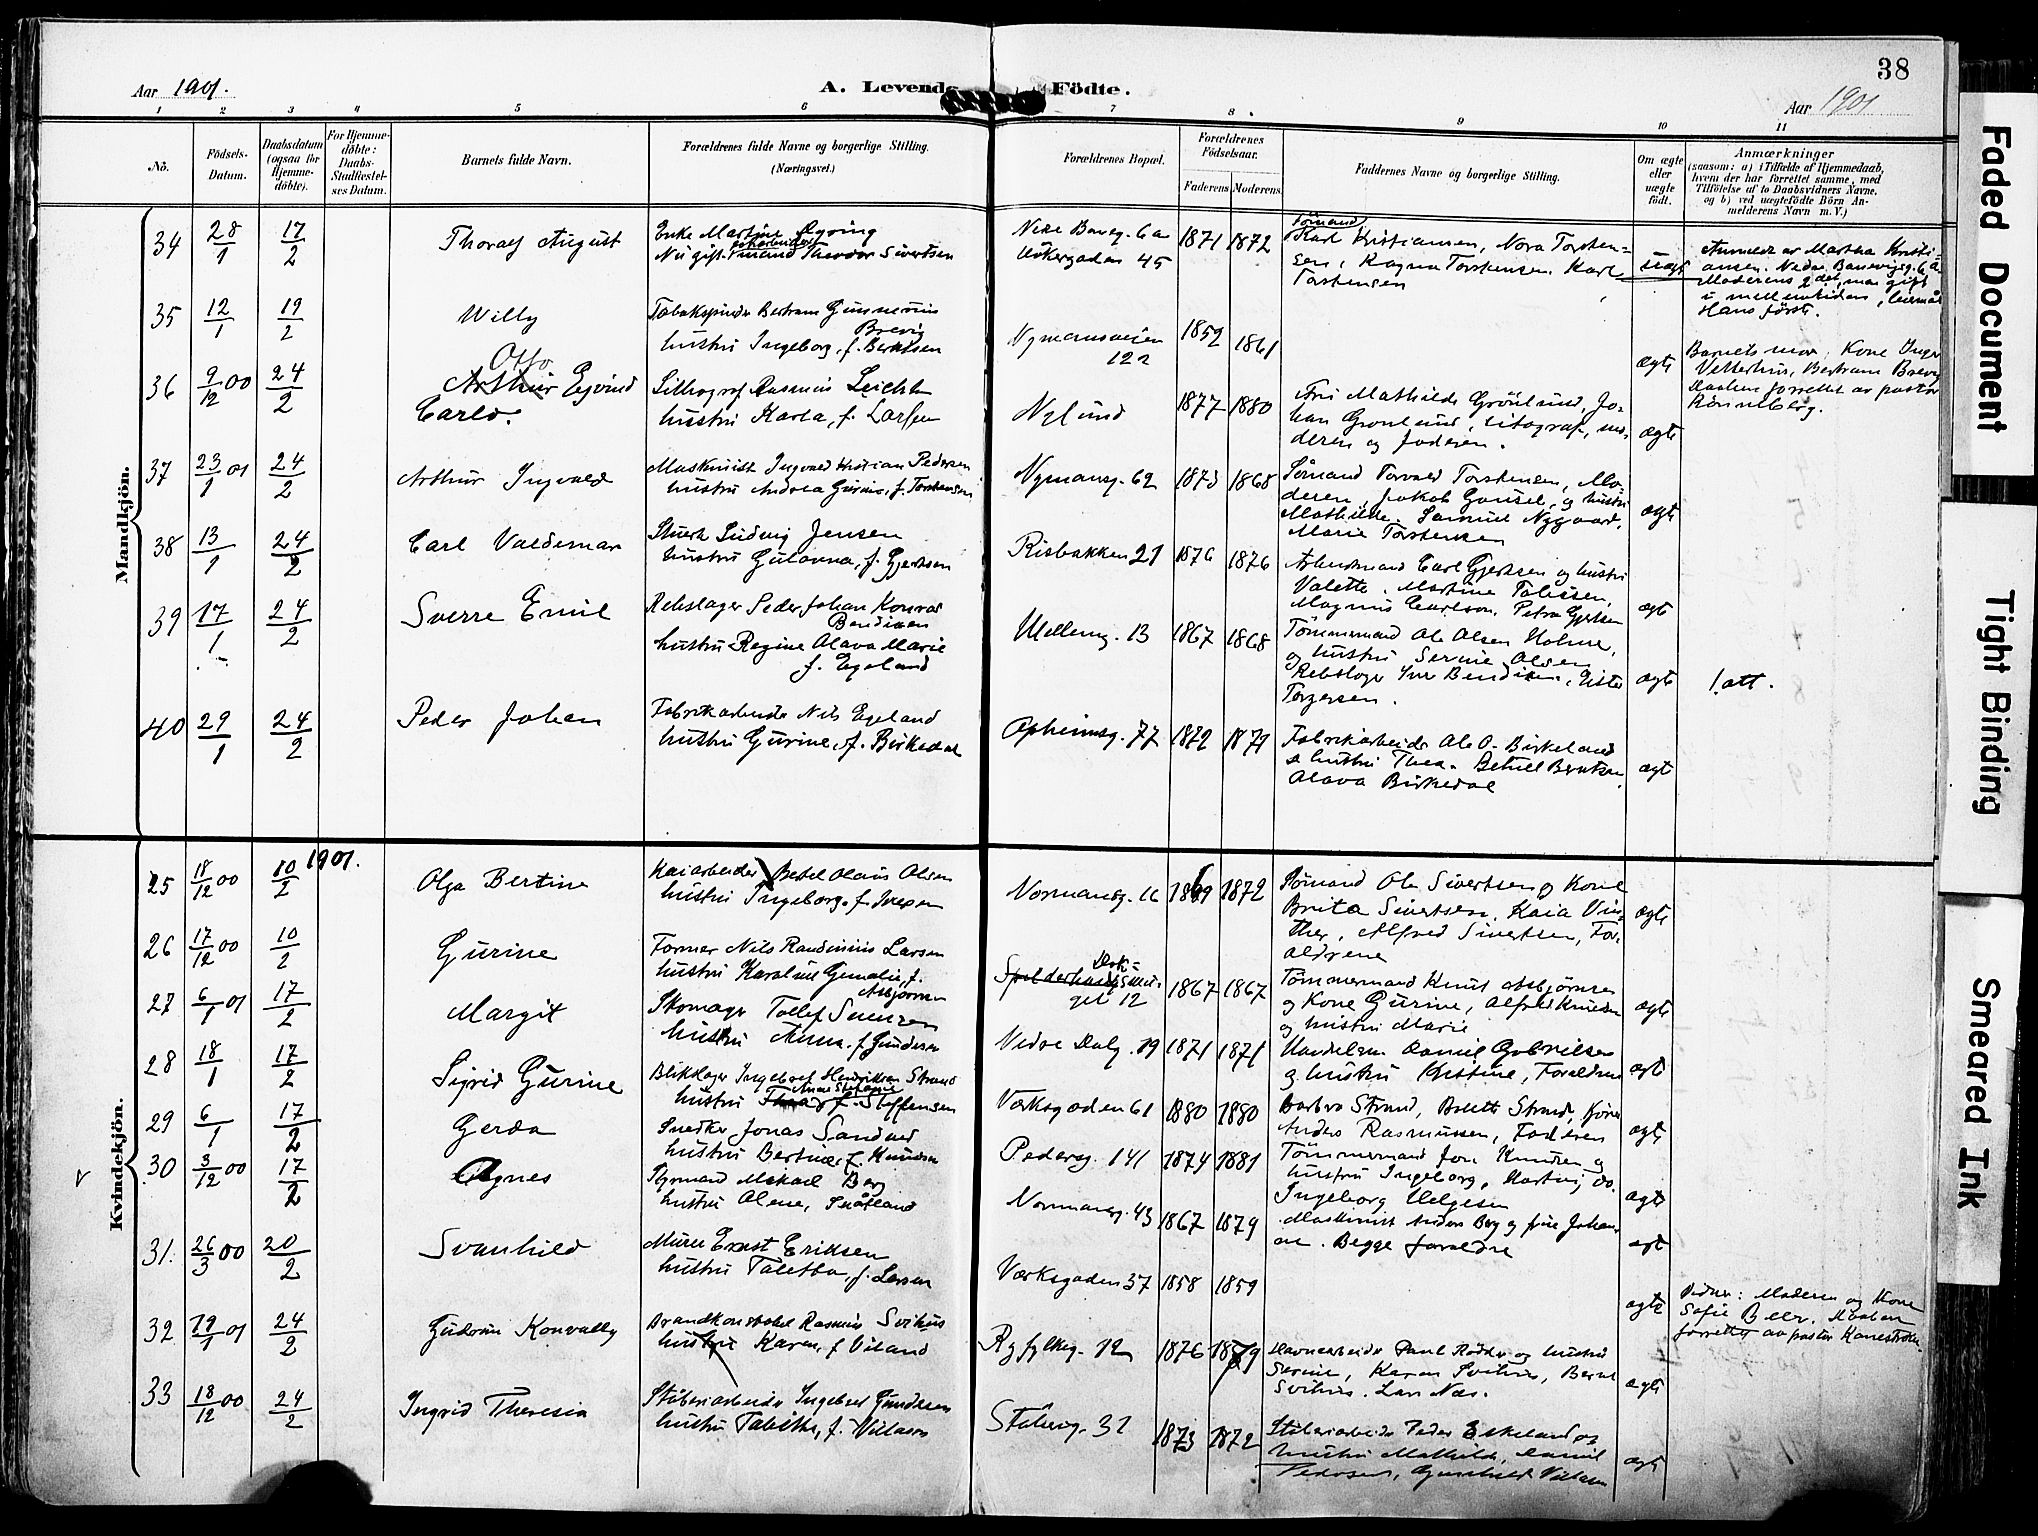 38
Aar 1901.
A. Levende Födte.
Aar 1901
1 2 3 4 5 6 7 8 9 10 11
No.
Födsels-
Datum.
Daabsdatum
(ogsaa for
Hjemme-
döbte).
For Hjemme-
döbte:
Daabs-
Stadfæstel-
ses Datum.
Barnets fulde Navn.
Forældrenes fulde Navne og borgerlige Stilling.
(Næringsvei.)
Forældrenes Bopæl.
Forældrenes
Födselsaar.
Faderens Moderens.
Faddernes Navne og borgerlige Stilling.
Om ægte
eller
uægte
födt.
Anmærkninger
(saasom: a) i Tilfælde af Hjemmedaab,
hvem der har forrettet samme, med
Tilföielse af to Daabsvidners Navne,
og b) ved uægtefödte Börn An-
melderens Navn m. V.)
Mandkjön.
34 28/1 17/2 Thoralf August
Enke Martine
Nu gift Theodor Sivertsen
Nedre Baneg. 6a
45
1871 1872
Sømand
Karl Kristiansen, Nora Torsten-
sen, Ragna Torstensen, Karl
Torstensen
uægt
Anmeldt av Martha Kristi-
ansen. Nedre Banevigsg. 6a
Moderens 2det, man gift
i mellemtiden, leiermål
Hans første.
35 12/1 19/2 Willy
Tobakspinder Bertram Gunnerius
Brevig
hustru Ingeborg, f. Berntsen
Nymansveien
12a
1859 1861
ægte
Barnets mor, Kone Inger
Vetterhus, Bertram Brevig
Daaben forrettet av pastor
Rønneberg.
36 9/12 00 24/2
Otto
Arthur Ejvind
Carlo.
Lithograf Rasmus
hustru Karla, f. Larsen
Nylund
1877 1880
Fru Mathilde Grönlund, Jo-
han Grönlund, Litograf, mo-
deren og faderen.
ægte
37 23/1 01 24/2 Arthur Ingvald
Maskinist Ingvald Kristian Pedersen
hustru Andrea Gurine, f. Torstensen
Nymansg. 62
1873 1868
Sømand Torvald Torstensen, Mo-
deren, Jakob Gausel, og hustru
Mathilde, Samuel Nygaard,
Marie Torstensen
ægte
38 13/1 24/2 Carl Valdemar
Stuert Ludvig Jensen
hustru Gulanna, f. Gjertsen
Risbakken 21
1876 1876
Arbeidsmand Carl Gjertsen og hustru
Valette. Martine
Magnus Carlson. Petra Gjertsen
ægte
39 17/1 24/2 Sverre Emil
Rebslager Peder Johan Konrad
Bendixen
hustru Regine Olava Marie
f. Egeland
Mellemg. 13
1867 1868
Tømmermand Ole Olsen Holme,
og hustru Serine Olsen
Rebslager Iver Bendixen,
Torgersen.
ægte
1. att.
40 29/1 24/2 Peder Johan
Fabrikarbeider Nils Egeland
hustru Gurine, f. Birkedal
Opheimsg. 77
1872 1877
Fabrikarbeider Ole O. Birkeland
& hustru Thea. Betuel Berntsen
Olava Birkedal
ægt
Kvindekjön.
1901.
25 18/12 00 10/2 Olga Bertine
Kaiarbeider Betel Olaus Olsen
hustru Ingeborg, f. Iversen
Normansg. 16
1869 1872
Sømand Ole Sivertsen og Kone
Brita Sivertsen, Kaia Vin-
ther, Alfred Sivertsen, For-
ældrene
ægte
26 17/12 00 10/2 Gurine
Former Nils Randinius Larsen
hustru Karoline Gemalie, f.
Asbjørnsen
12
1867 1867
Tømmermand Knut Asbjørnsen
og Kone Gurine, Alfred Knudsen
og hustru Marie
ægte
27 6/1 01 17/2 Margit
Skomager Tollef Svensen
hustru Anna, f. Gundersen
Nedre Dalg. 19
1871 1871
Daniel Gabrielsen
og hustru Kristine, Forældrene
ægt
28 18/1 17/2 Sigrid Gurine
Blikslager Ingebret Henriksen Strand
hustru Anna Stefanie f. Steffensen
Værksgaden 61
1880 1880
Barbra Strand, Bolette Strand, Kone
Anders Rasmussen, Faderen
ægte
29 6/1 17/2 Gerda
Snedker Jonas Sandved
hustru Bertine, f. Knudsen
Pedersg. 141
1874 1881
Tømmermand Jon Knudsen og
hustru Ingeborg, Hartvig do.
Ingeborg Helgesen
ægte
30 3/12 00 17/2 Agnes
Styrmand Mikael Berg
hustru Olene, Snåeland
Normansg. 43
1867 1879
Maskinist Anders Berg og frue Johan-
ne. Begge forældre
ægt
31. 26/3 00 20/2 Svanhild
Murer Ernst Eriksen
hustru Taletta, f. Larsen
Værksgaden 37
1858 1859
ægte
Vidner: Moderen og Kone
Sofie Beer. Daaben
forrettet av pastor
32 19/1 01 24/2 Gudrun Konvally
Brandkonstabel Rasmus Svihus
hustru Karen, f. Viland
Ryfylkeg. 12
1876 1879
Havnearbeider Paul Rødder og hustru
Serine, Karen Svihus, Bernt
Svihus. Lars Næs.
ægte
33 18/12 00 24/2 Ingrid Theresia
Støberiarbeider Ingebret Gundersen
hustru Tabitha, f.
Støberig. 31
1873 1872
Støberiarbeider Peder Eskeland og
hustru Mathilde, Daniel
Pedersen, Gunhild
ægte
Faded Document
Tight Binding
Smeared Ink